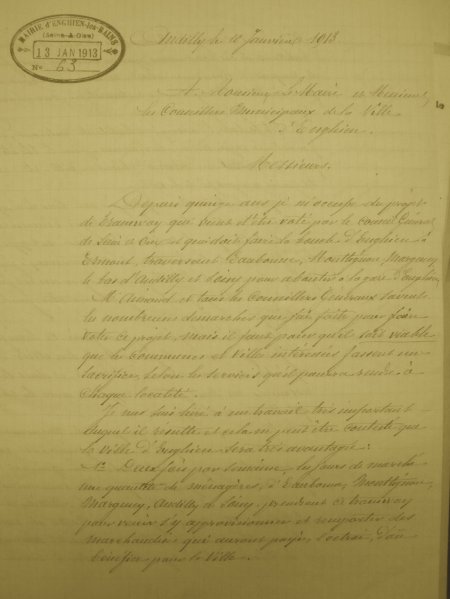 MAIRIE d'ENGHIEN-les-BAINS
(Seine-&-Oise)
13 JAN 1913
No 63
Andilly le 10 Janvier 1913
A Monsieur le Maire et Messieurs
les Conseillers Municipaux de la Ville
d'Enghien.
Messieurs.
Depuis quinze ans je m'occupe du projet
de tramway que vient d'être voté par le Conseil Général
de Seine et Oise et qui doit faire la boucle d'Enghien à
Ermont, traversant Eaubonne, Montlignon, Margency
le bas d'Andilly et Soisy pour aboutir à la gare d'Enghien,
M. Aimond et tous les Conseillers Généraux savent
les nombreuses démarches que j'ai faites pour faire
voter ce projet, mais il faut pour qu'il soit viable
que les communes et villes intéressées fassent un
sacrifice, selon les services qu'il pourra rendre à
chaque localité.
Je me suis livré à un travail très important
duquel il résulte et cela ne peut être contesté que
la Ville d'Enghien sera très avantagée:
1o Deux fois par semaine, les jours de marché
une quantité de ménagères, d'Eaubonne, Montlignon,
Margency, Andilly & Soisy prendront ce tramway
pour venir s'y approvisionner et remporter des
marchandises qui auront payé l'octroi, d'où
bénéfice pour la Ville.